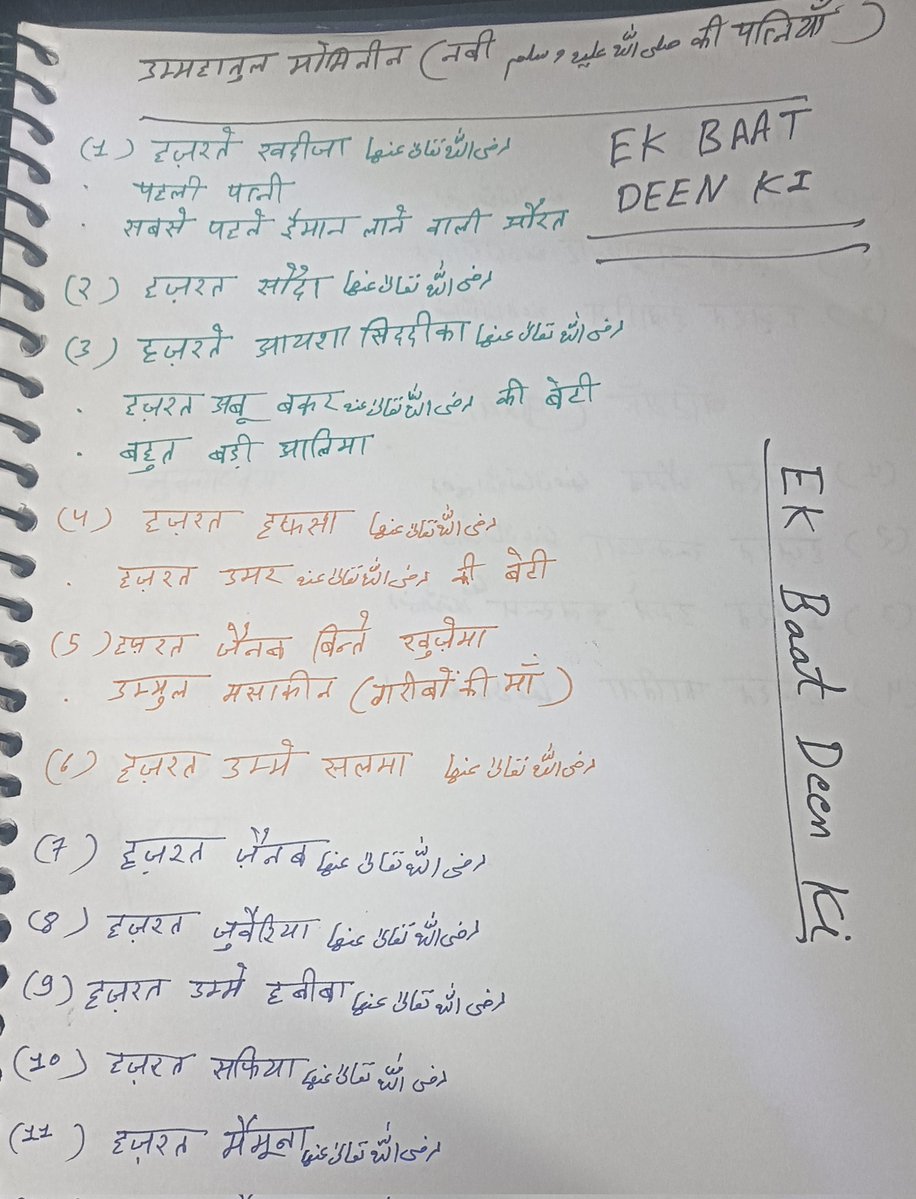 उम्महातुल मोमिनीन (नबी صلى الله عليه وسلم की पत्नियाँ)
EK BAAT
DEEN KI
(1) हज़रते खदीजा رضی اللہ تعالیٰ عنہا
· पहली पत्नी
· सबसे पहले ईमान लाने वाली औरत
(२) हज़रत सौदा رضی اللہ تعالیٰ عنہا
(3) हज़रते आयशा सिददीका رضی اللہ تعالیٰ عنہا
· हज़रत अबू बकर رضی اللہ تعالیٰ عنہ की बेटी
· बहुत बड़ी आलिमा
(५) हज़रत हफसा رضی اللہ تعالیٰ عنہا
· हज़रत उमर رضی اللہ تعالیٰ عنہ की बेटी
(5) हज़रत जैनब बिन्ते खुज़ेमा
· उम्मुल मसाकीन (गरीबों की माँ)
(6) हज़रत उम्मे सलमा رضی اللہ تعالیٰ عنہا
(7) हज़रत ज़ैनब رضی اللہ تعالیٰ عنہا
(8) हज़रत जुवैरिया رضی اللہ تعالیٰ عنہا
(9) हज़रत उम्मे हबीबा رضی اللہ تعالیٰ عنہا
(10) हज़रत सफिया رضی اللہ تعالیٰ عنہا
(11) हज़रत मैमूना رضی اللہ تعالیٰ عنہا
Ek Baat Deen Ki